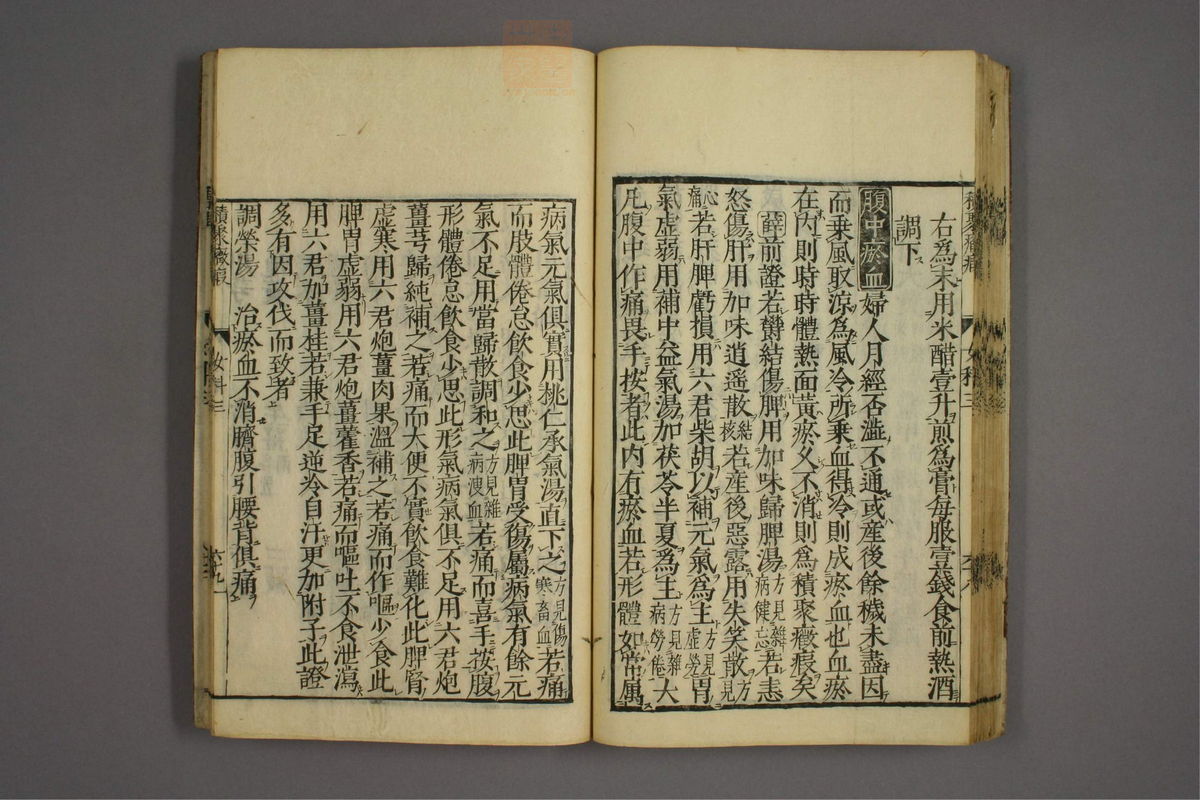 右爲末用米醋壹升煎爲膏每服壹錢食前熱酒
調下
腹中瘀血婦人月經否澁不通或產後餘穢未盡因
而乘風取涼爲風冷所乘血得冷則成瘀血也血瘀
在內則時時體熱面黃瘀久不消則爲積聚癥瘕矣
薛前證若欝結傷脾用加味歸脾湯方見雜病健忘若恚
怒傷肝用加味逍遥散結核若産後惡露用失笑散方見
心痛若肝脾虧損用六君柴胡以補元氣爲主方見虛勞胃
氣虛弱用補中益氣湯加茯苓半夏爲主方見雜病勞倦大
凡腹中作痛畏手按者此內有瘀血若形體如常属
病氣元氣俱實用桃仁承氣湯直下之方見傷寒畜血若痛
而肢體倦怠飲食少思此脾胃受傷屬病氣有餘元
氣不足用當歸散調和之方見雜病溲血若痛而喜手按腹
形體倦怠飲食少思此形氣病氣俱不足用六君炮
薑芎歸純補之若痛而大便不實飲食難化此脾腎
虛寒用六君炮薑肉果溫補之若痛而作嘔少食此
脾胃虛弱用六君炮薑藿香若痛而嘔吐不食泄瀉
用六君加薑桂若兼手足逆冷自汗更加附子此證
多有因攻伐而致者
調榮湯 治瘀血不消臍腹引腰背俱痛
積聚癥瘕
女科三